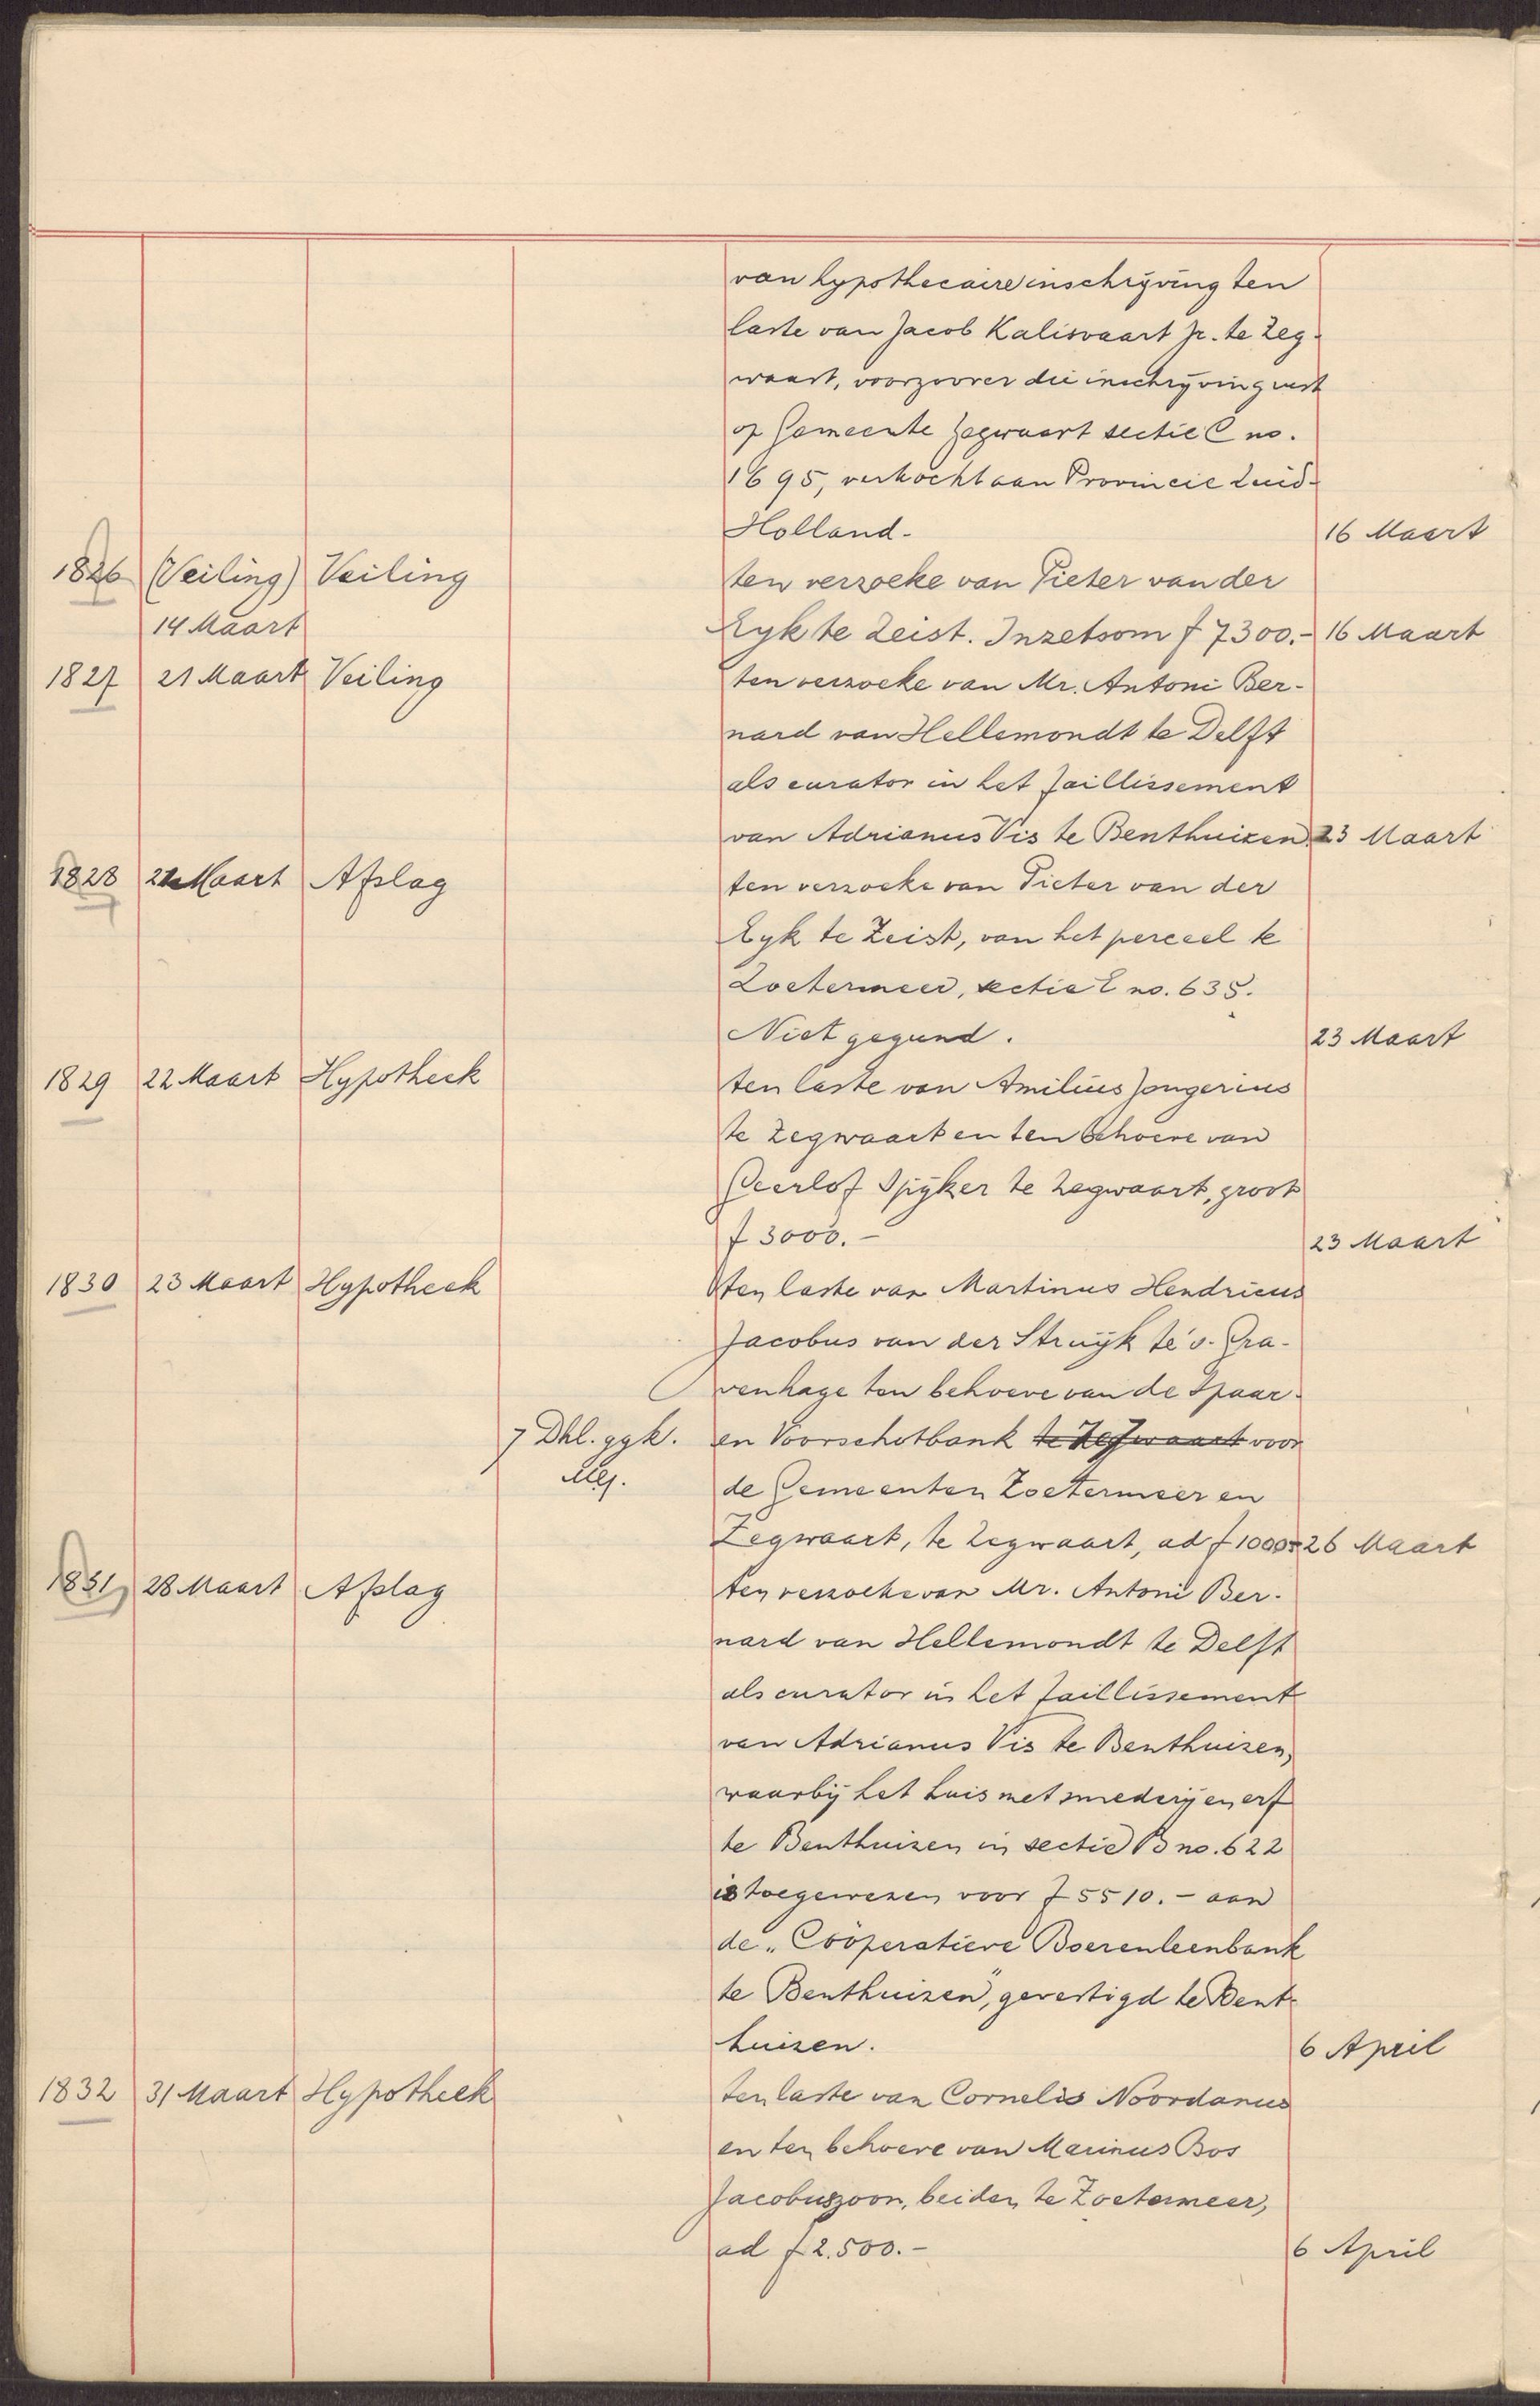 van hypothecaire inschrijving ten
laste van Jacob Kalisvaart Jr. te Zeg-
waart, voorzoover die inschrijving rust
op Gemeente Zegwaart sectie C no.
1695, verkocht aan Provincie Zuid-
Holland. 16 Maart
1826 (Veiling) Veiling ten verzoeke van Pieter van der
14 Maart Eyk te Zeist. Inzetsom f 7300.- 16 Maart
1827 21 Maart Veiling ten verzoeke van Mr. Antoni Ber-
nard van Hellemondt te Delft
als curator in het faillissement
van Adrianus Vis te Benthuizen 23 Maart
1828 21 Maart Afslag ten verzoeke van Pieter van der
Eyk te Zeist, van het perceel te
Zoetermeer, sectie E no. 635.
Niet gegund. 23 Maart
1829 22 Maart Hypotheek ten laste van Amilius Jongerius
te Zegwaart en ten behoeve van
Peerlof Spijker te Zegwaart, groot
f 3000.- 23 Maart
1830 23 Maart Hypotheek ten laste van Martinus Hendricus
Jacobus van der Struijk te 's-Gra-
venhage ten behoeve van de Spaar-
7 Dhl. ggk. en Voorschotbank te Zegwaart voor
de Gemeenten Zoetermeer en
Zegwaart, te Zegwaart, ad f 1000.- 26 Maart
1831 28 Maart Afslag ten verzoeke van Mr. Antoni Ber-
nard van Hellemondt te Delft
als curator in het faillissement
van Adrianus Vis te Benthuizen,
waarbij het huis met smederij en erf
te Benthuizen in sectie B no. 622
is toegewezen voor f 5510.- aan
de „Coöperatieve Boerenleenbank
te Benthuizen", gevestigd te Bent-
huizen. 6 April
1832 31 Maart Hypotheek ten laste van Cornelis Noordanus
en ten behoeve van Marinus Bos
Jacobuszoon, beiden te Zoetermeer,
ad f 2.500.- 6 April